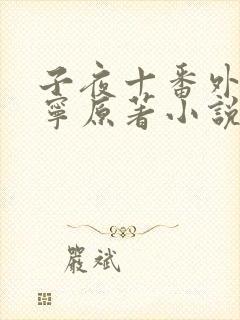 子夜十番外
寧原著小說
嚴斌